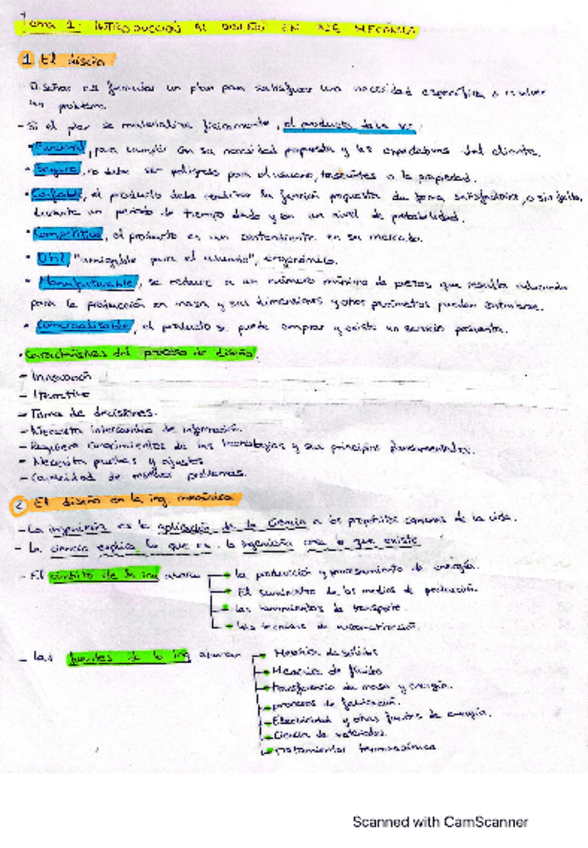 Tema 1: INTRODUCCIÓN AL DISEÑO EN ING MECÁNICA
1 El diseño
Diseñar es formular un plan para satisfacer una necesidad específica o resolver
un problema.
- Si el plan se materializa físicamente, el producto debe ser:
• Funcional, para cumplir con su necesidad propuesta y las expectativas del cliente.
• Seguro, no debe ser peligroso para el usuario, o la propiedad.
• Confiable, el producto debe realizar la función propuesta de forma satisfactoria, o sin fallo,
durante un período de tiempo dado y en un nivel de probabilidad.
• Competitivo, el producto es un contendiente en su mercado.
• Útil, "amigable para el usuario", ergonómico.
• Manufacturable, se reduce a un número mínimo de piezas que resulta adecuado
para la producción en masa y sus dimensiones y otros parámetros pueden
• Comercializable, el producto se puede comprar y existe un servicio posventa.
• Características del proceso de diseño.
- Innovación
- Iterativo
- Toma de decisiones.
- Necesita intercambio de información.
- Requiere conocimientos de las tecnologías y sus principios fundamentales.
- Necesita pruebas y ajustes
- Cantidad de problemas.
2 El diseño en la ing. mecánica
- La ingeniería es la aplicación de la ciencia a los propósitos comunes de la vida.
- La ciencia explica lo que es, la ingeniería crea lo que existe.
- El ámbito de la ing abarca
la producción y procesamiento de energía.
El suministro de los medios de producción.
las herramientas de transporte.
las técnicas de automatización.
- Las fuentes de la ing abarcan
Mecánica de sólidos
Mecánica de fluido
transferencia de masa y energía.
procesos de fabricación.
Electricidad y otras fuentes de energía.
Ciencia de materiales.
tratamientos termodinámica
Scanned with CamScanner